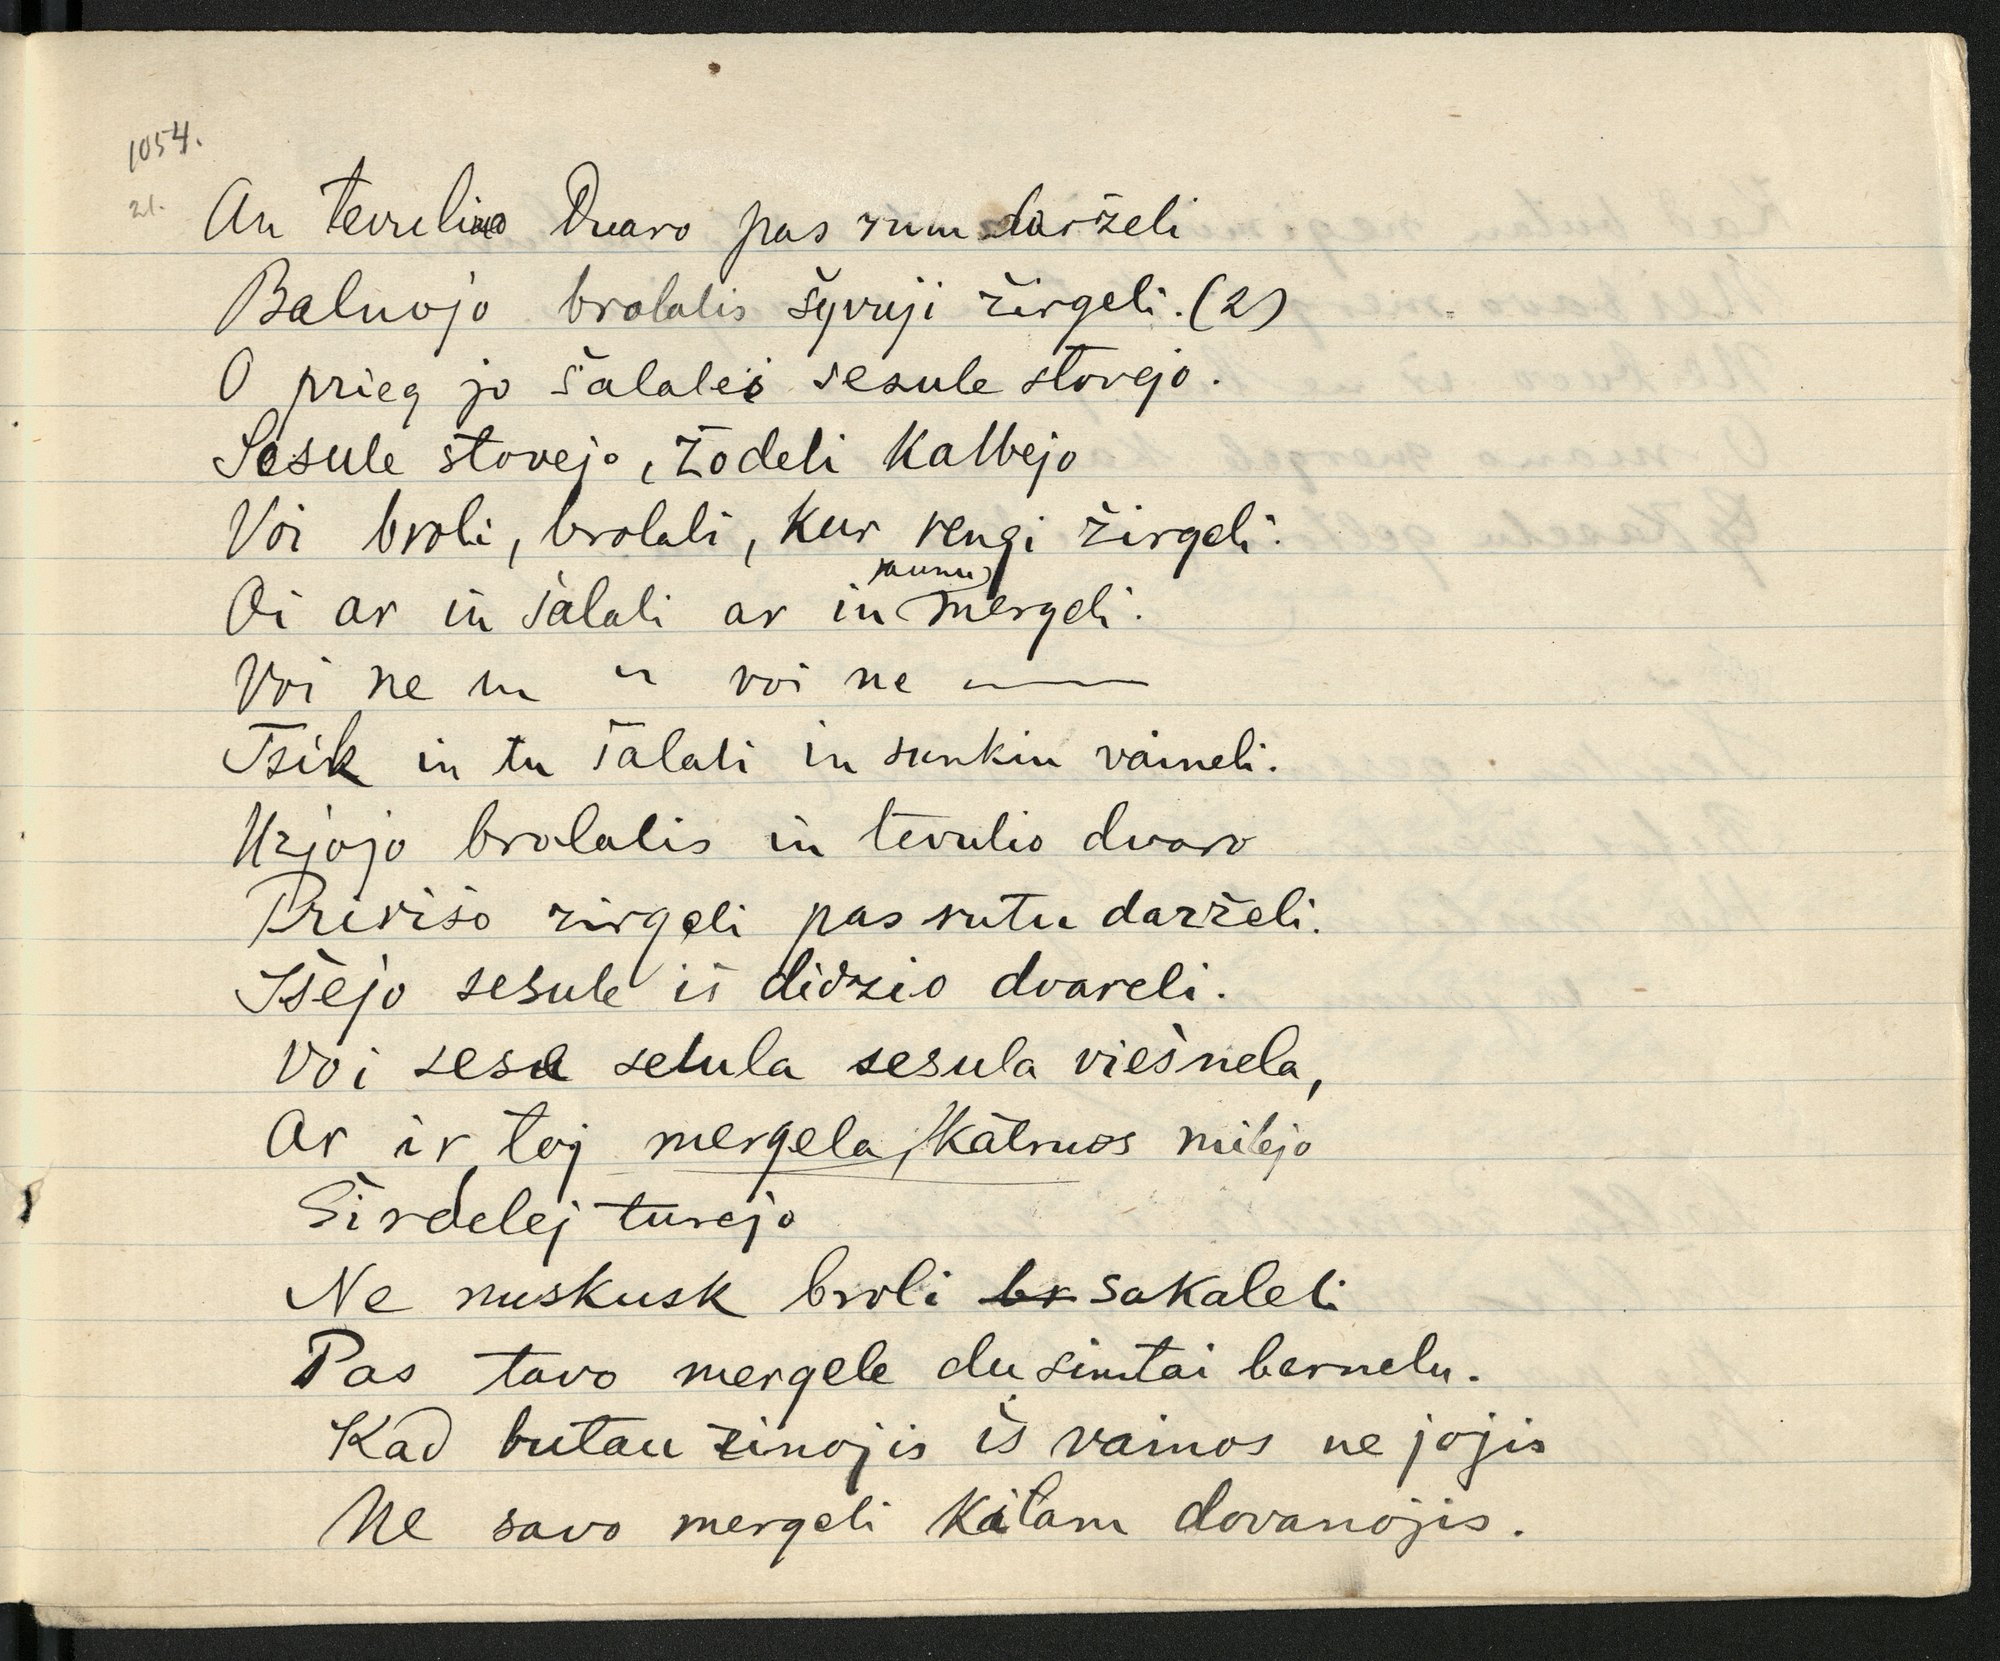 1054.
21.
An tevulio Dvaro pas rum darželi
Balnojo brolalis šyvuji žirgeli. (2)
O prieg jo šalalei sesule stovejo.
Sesule stovejo, žodeli kalbejo
Voi broli, brolali, kur rengi žirgeli.
jaunu
Oi ar in šalali ar in mergeli.
Voi ne in " voi ne ——
Tsik in tu šalali in sunkiu vaineli.
Užjojo brolalis in tevulio dvaro
Pririšo žirgeli pas rutu darželi.
Išejo sesule iš didzio dvareli.
Voi sesa sesula viešnela,
Ar ir toj mergela, Katruos milejo
Širdelej turejo
Ne nuskusk broli br sakaleli
Pas tavo mergele du simtai bernelu.
Kad butau žinojis iš vainos ne jojis
Ne savo mergeli kitam dovanojis.